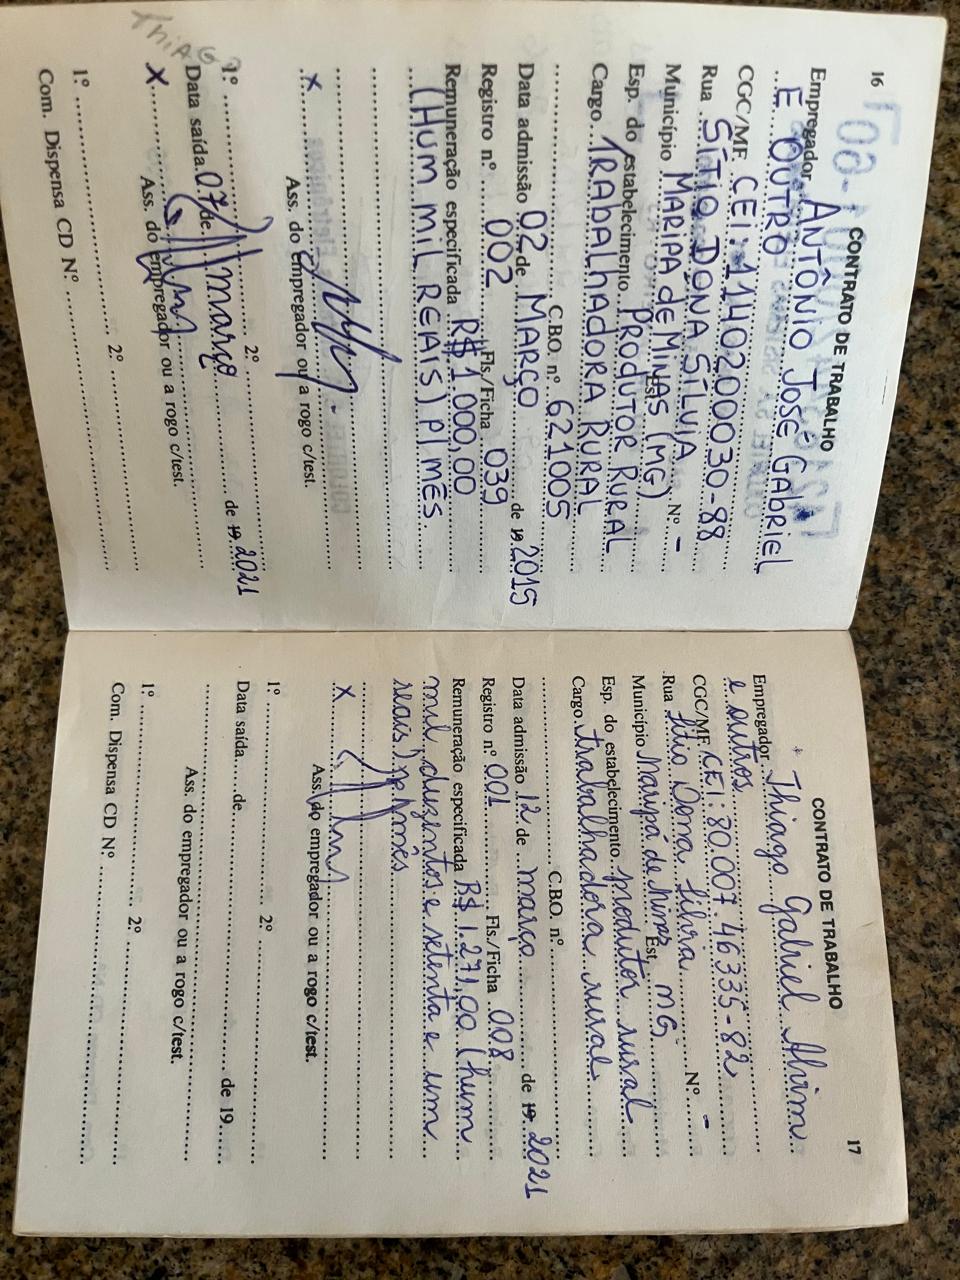 16
CONTRATO DE TRABALHO
Empregador ANTÔNIO JOSÉ GABRIEL
E OUTRO
CGC/MF CEI: 1140200030-88
Rua SÍTIO DONA SÍLVIA Nº -
Município MARIPÁ de MINAS (MG) Est.
Esp. do estabelecimento PRODUTOR RURAL
Cargo TRABALHADORA RURAL
C.B.O. nº 621005
Data admissão 02 de MARÇO de 19 2015
Registro nº 002 Fls./Ficha 039
Remuneração especificada R$ 1.000,00
(HUM MIL REAIS) P/ MÊS.
x
Ass. do empregador ou a rogo c/test.
1º 2º
Data saída 07 de março de 19 2021
THIAGO
x
Ass. do empregador ou a rogo c/test.
1º 2º
Com. Dispensa CD Nº
17
CONTRATO DE TRABALHO
Empregador Thiago Gabriel Alvim
e outros
CGC/MF CEI: 80.007.46335-82
Rua Sítio Dona Sílvia Nº -
Município Maripá de Minas Est. MG
Esp. do estabelecimento produtor rural
Cargo trabalhadora rural
C.B.O. nº
Data admissão 12 de março de 19 2021
Registro nº 001 Fls./Ficha 008
Remuneração especificada R$ 1.271,00 (hum
mil, duzentos e setenta e um
reais) p/ mês
x
Ass. do empregador ou a rogo c/test.
1º 2º
Data saída de de 19
Ass. do empregador ou a rogo c/test.
1º 2º
Com. Dispensa CD Nº